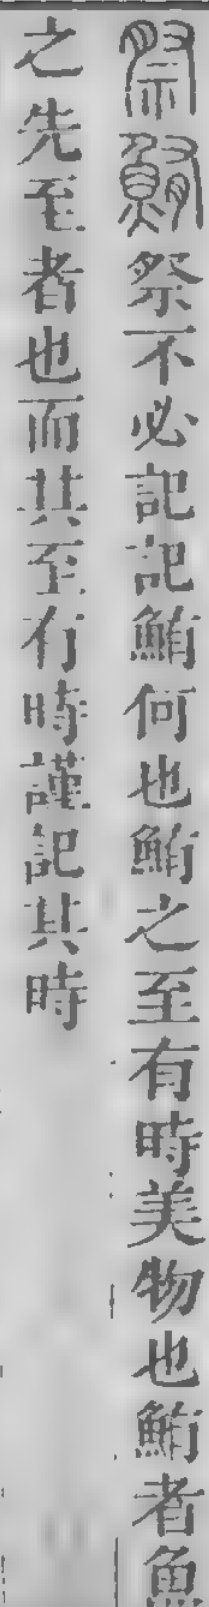 祭鮪祭不必記記鮪何也鮪之至有時美物也鮪者魚
之先至者也而其至有時謹記其時